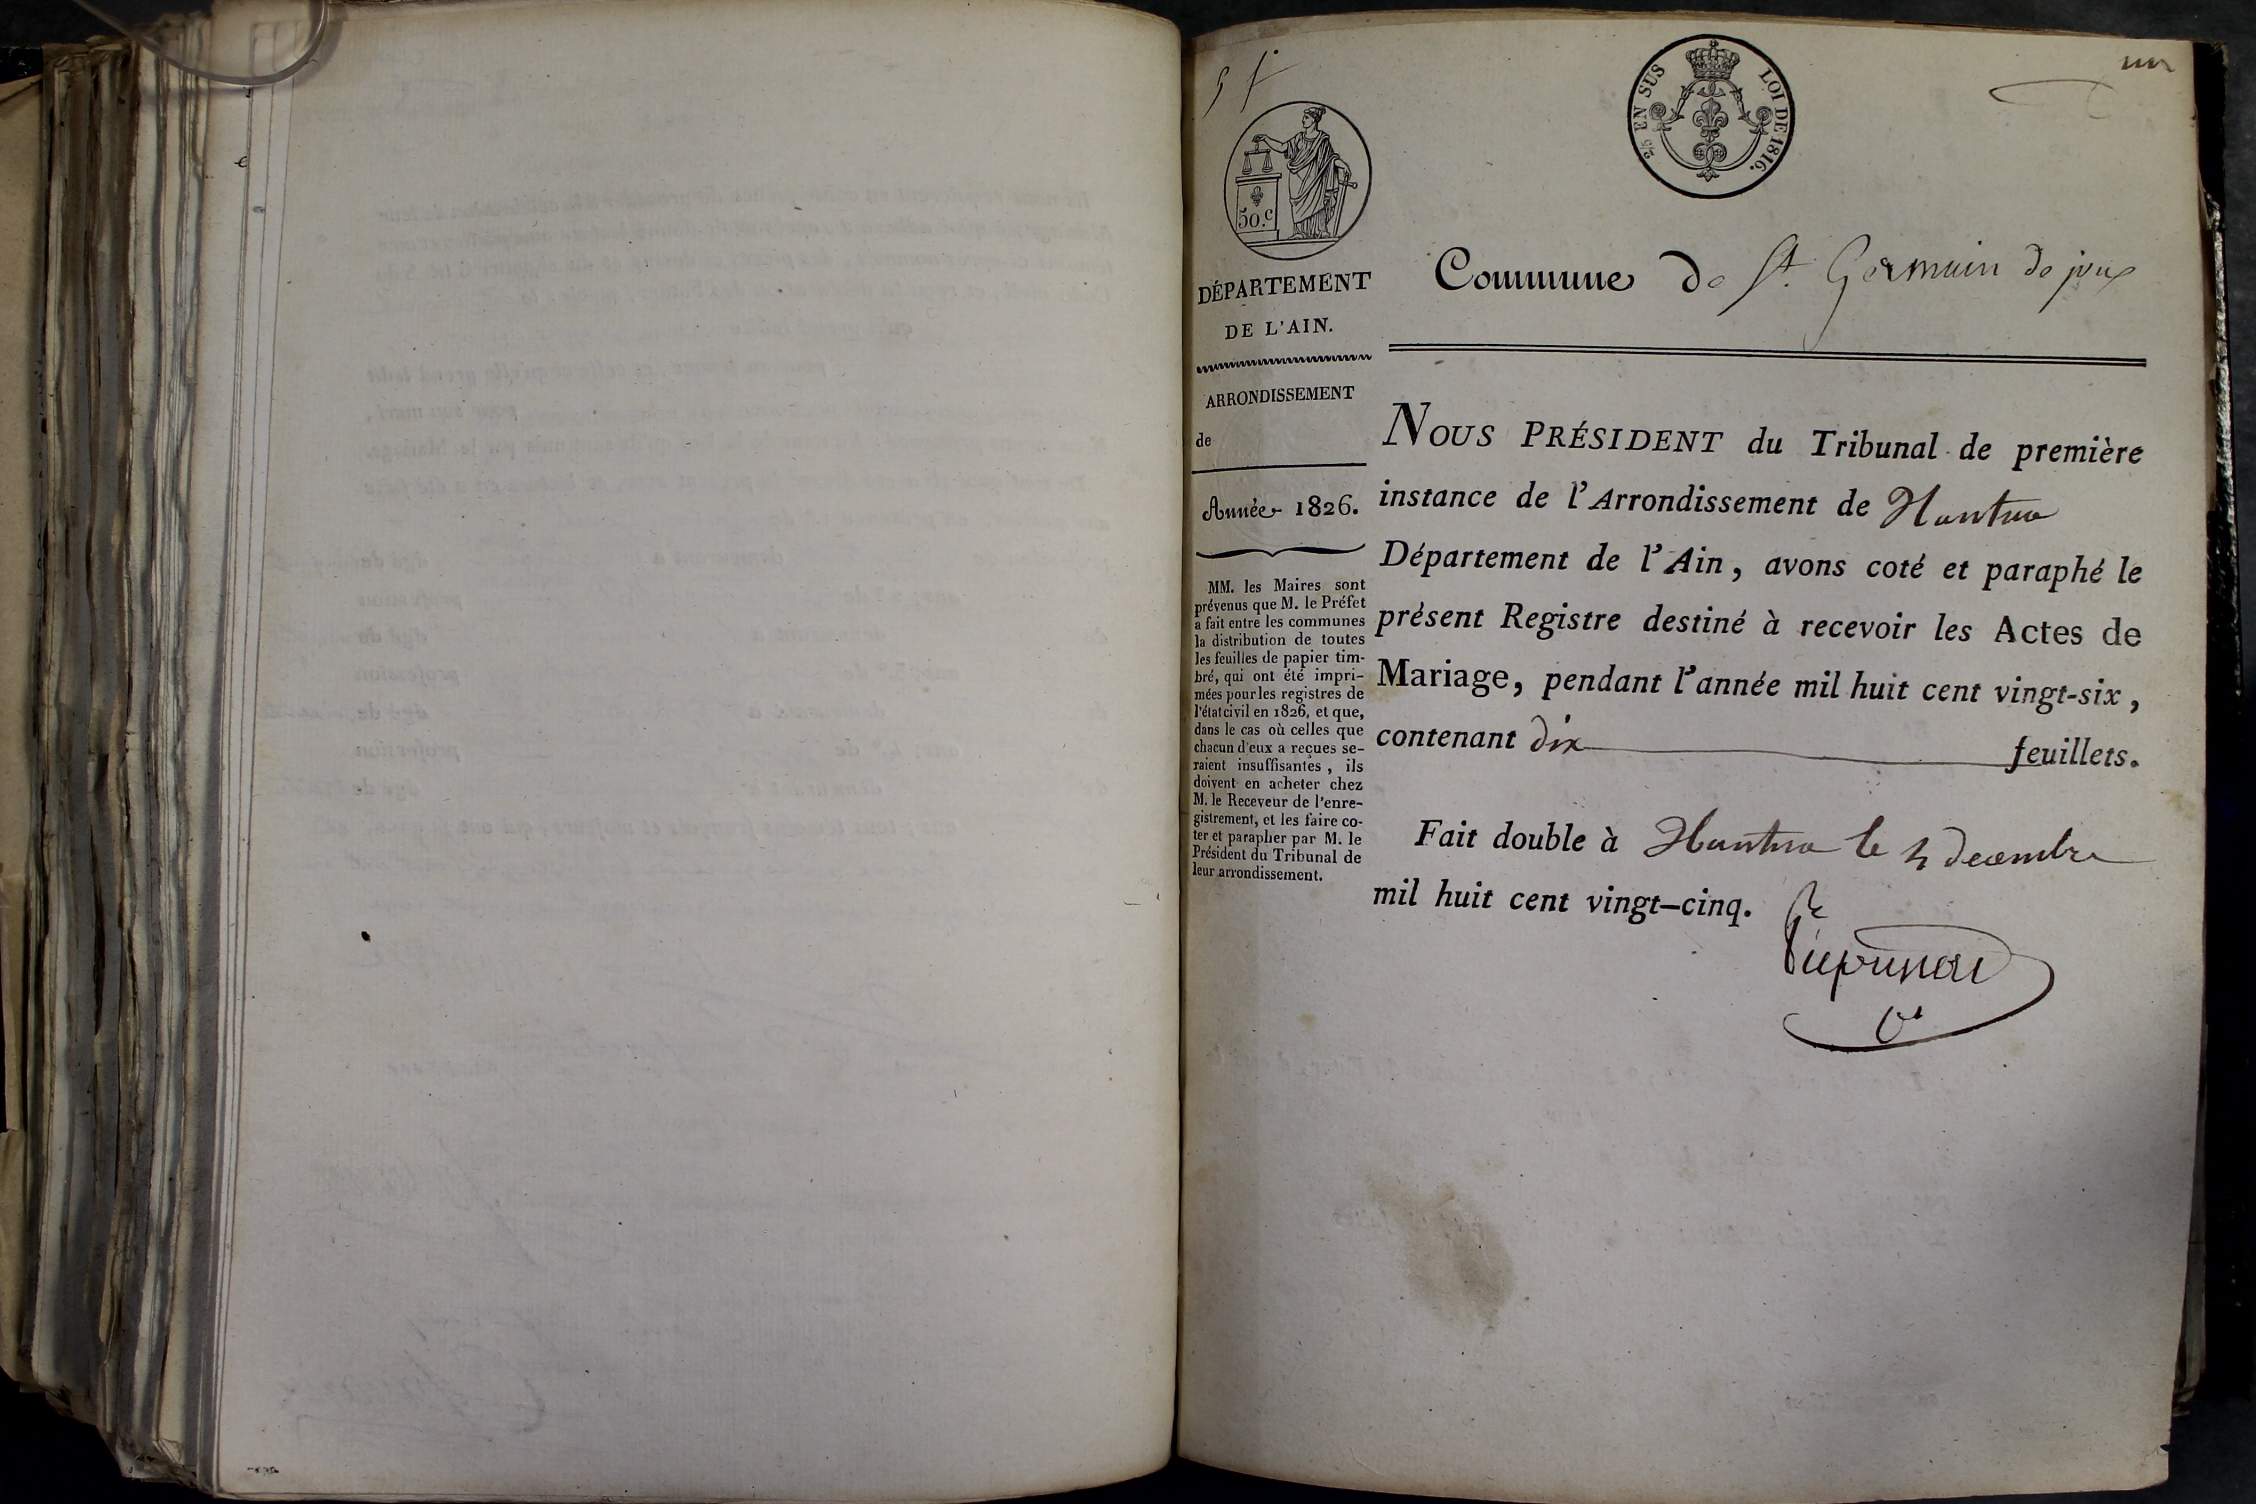 un
2/5 EN SUS LOI DE 1816.
50.c
DÉPARTEMENT
DE L'AIN.
ARRONDISSEMENT
de
Année 1826.
MM. les Maires sont
prévenus que M. le Préfet
a fait entre les communes
la distribution de toutes
les feuilles de papier tim-
bré, qui ont été impri-
mées pour les registres de
l'état civil en 1826, et que,
dans le cas où celles que
chacun d'eux a reçues se-
raient insuffisantes, ils
doivent en acheter chez
M. le Receveur de l'enre-
gistrement, et les faire co-
ter et parapher par M. le
Président du Tribunal de
leur arrondissement.
Commune de St. Germain de joux
NOUS PRÉSIDENT du Tribunal de première
instance de l'Arrondissement de Nantua
Département de l'Ain, avons coté et paraphé le
présent Registre destiné à recevoir les Actes de
Mariage, pendant l'année mil huit cent vingt-six,
contenant dix feuillets.
Fait double à Nantua le 4 decembre
mil huit cent vingt-cinq.